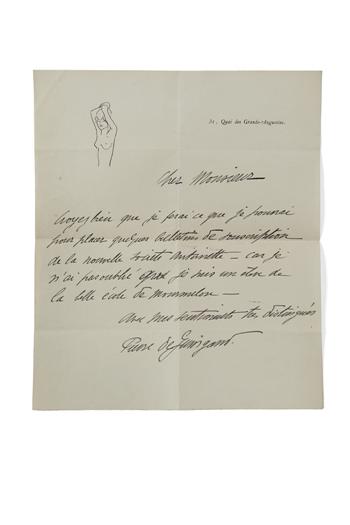 51, Quai des Grands-Augustins.
Cher Monsieur
Croyez bien que je ferai ce que je pourrai
pour placer quelques bulletins de souscription
de la nouvelle Joliette Antoinette — car je
n'ai pas oublié que je suis un élève de
la belle école de
Avec mes sentiments très distingués
Pierre de